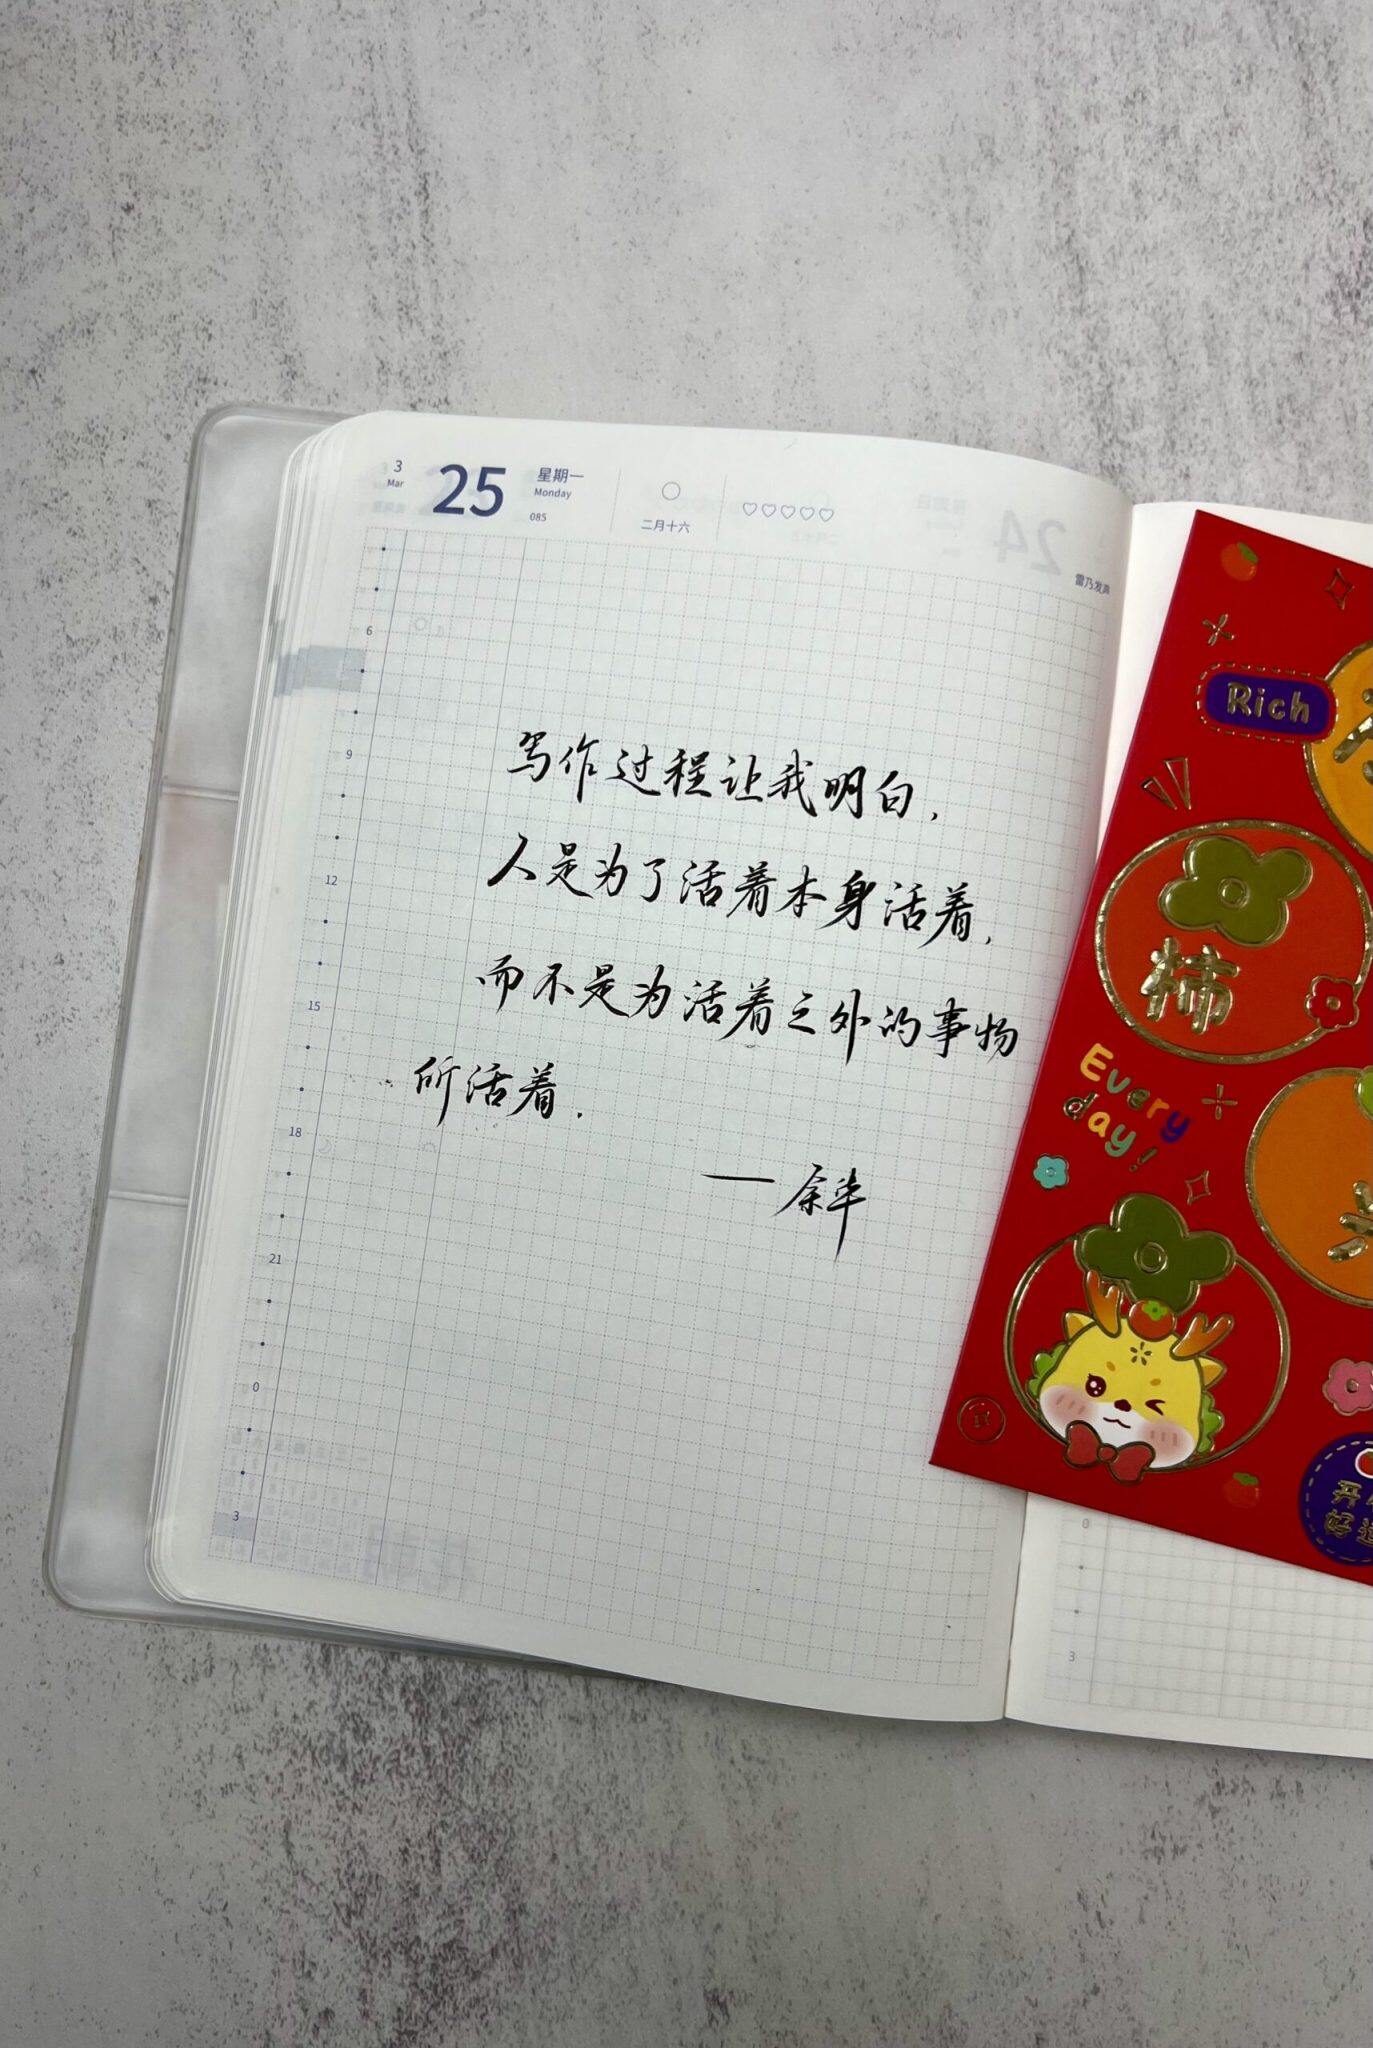 3
Mar
25
星期一
Monday
085
二月十六
雷乃发声
6
9
12
15
18
21
0
3
写作过程让我明白，
人是为了活着本身活着，
而不是为活着之外的事物
所活着.
——余华
Rich
柿
Every
day!
开
好运
0
3